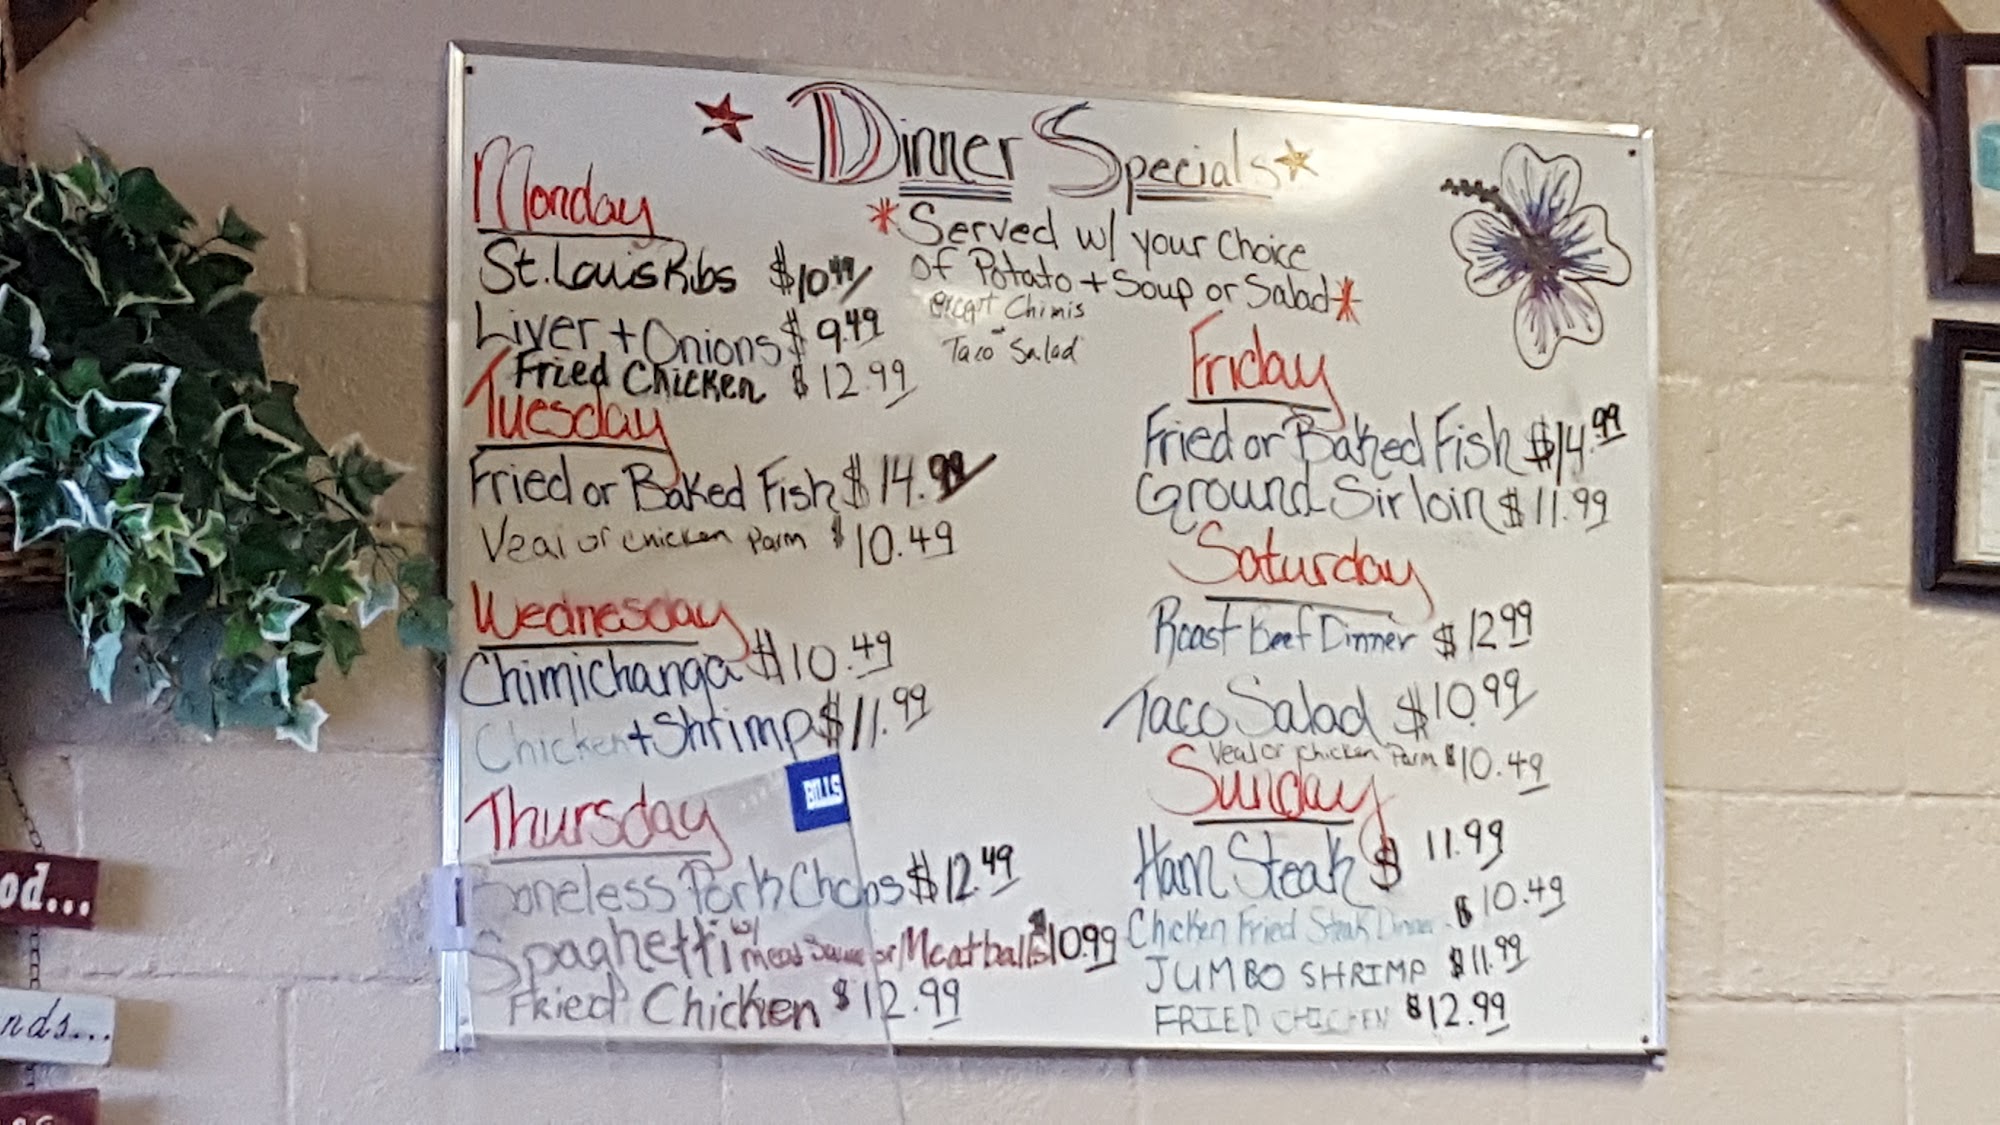 Dinner Specials
*Served w/ your choice
of Potato + Soup or Salad*
except Chimis
Taco Salad
Monday
St. Louis Ribs $10.49
Liver + Onions $9.49
Fried Chicken $12.99
Tuesday
Fried or Baked Fish $14.99
Veal or chicken parm $10.49
Wednesday
Chimichanga $10.49
Chicken + Shrimp $11.99
Thursday
BILLS
Boneless Pork Chops $12.49
Spaghetti w/ meat Sauce or Meatballs $10.99
Fried Chicken $12.99
Friday
Fried or Baked Fish $14.99
Ground Sirloin $11.99
Saturday
Roast Beef Dinner $12.99
Taco Salad $10.99
Veal or chicken Parm $10.49
Sunday
Ham Steak $11.99
Chicken Fried Steak Dinner $10.49
JUMBO SHRIMP $11.99
FRIED CHICKEN $12.99
od...
nds...